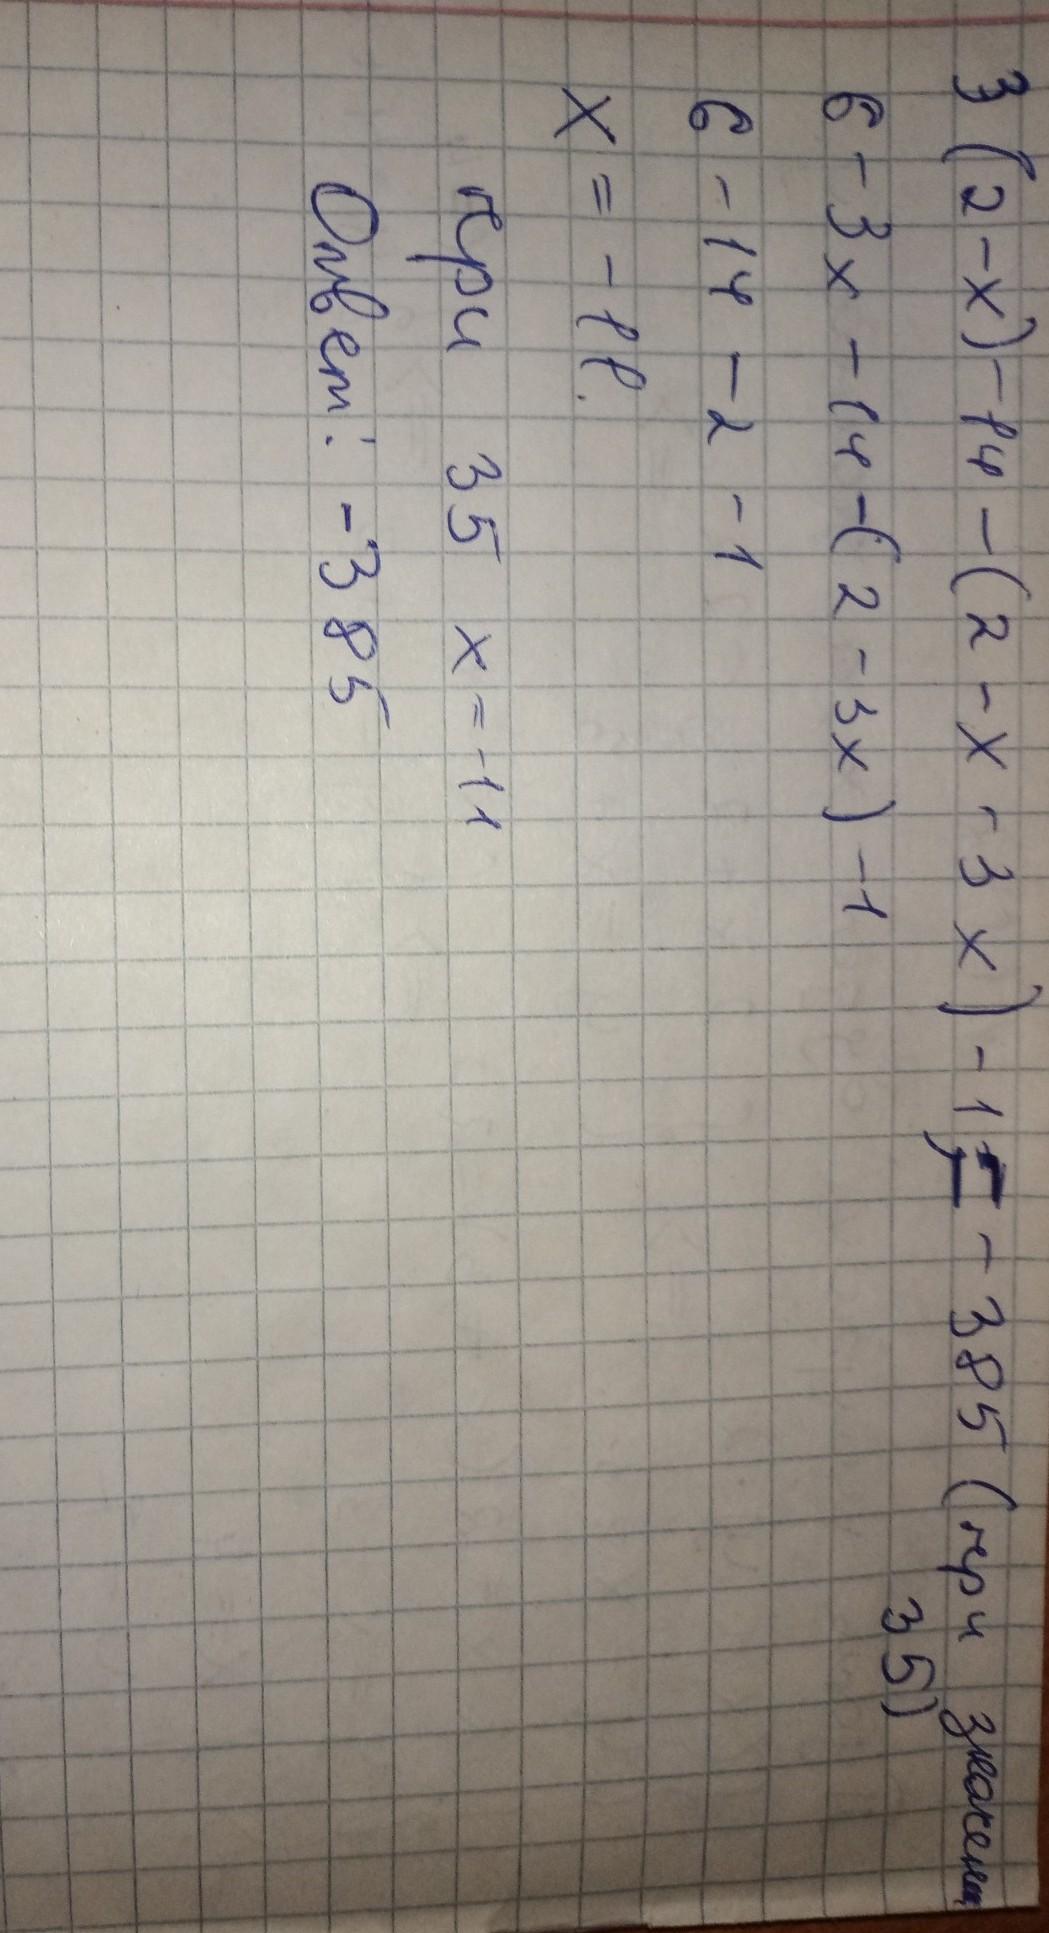 3(2-x)-14-(2-x-3x)-1=-385 (при значении
35)
6-3x-14-(2-3x)-1
6-14-2-1
x=-11.
при 35 x=-11
Ответ: -385